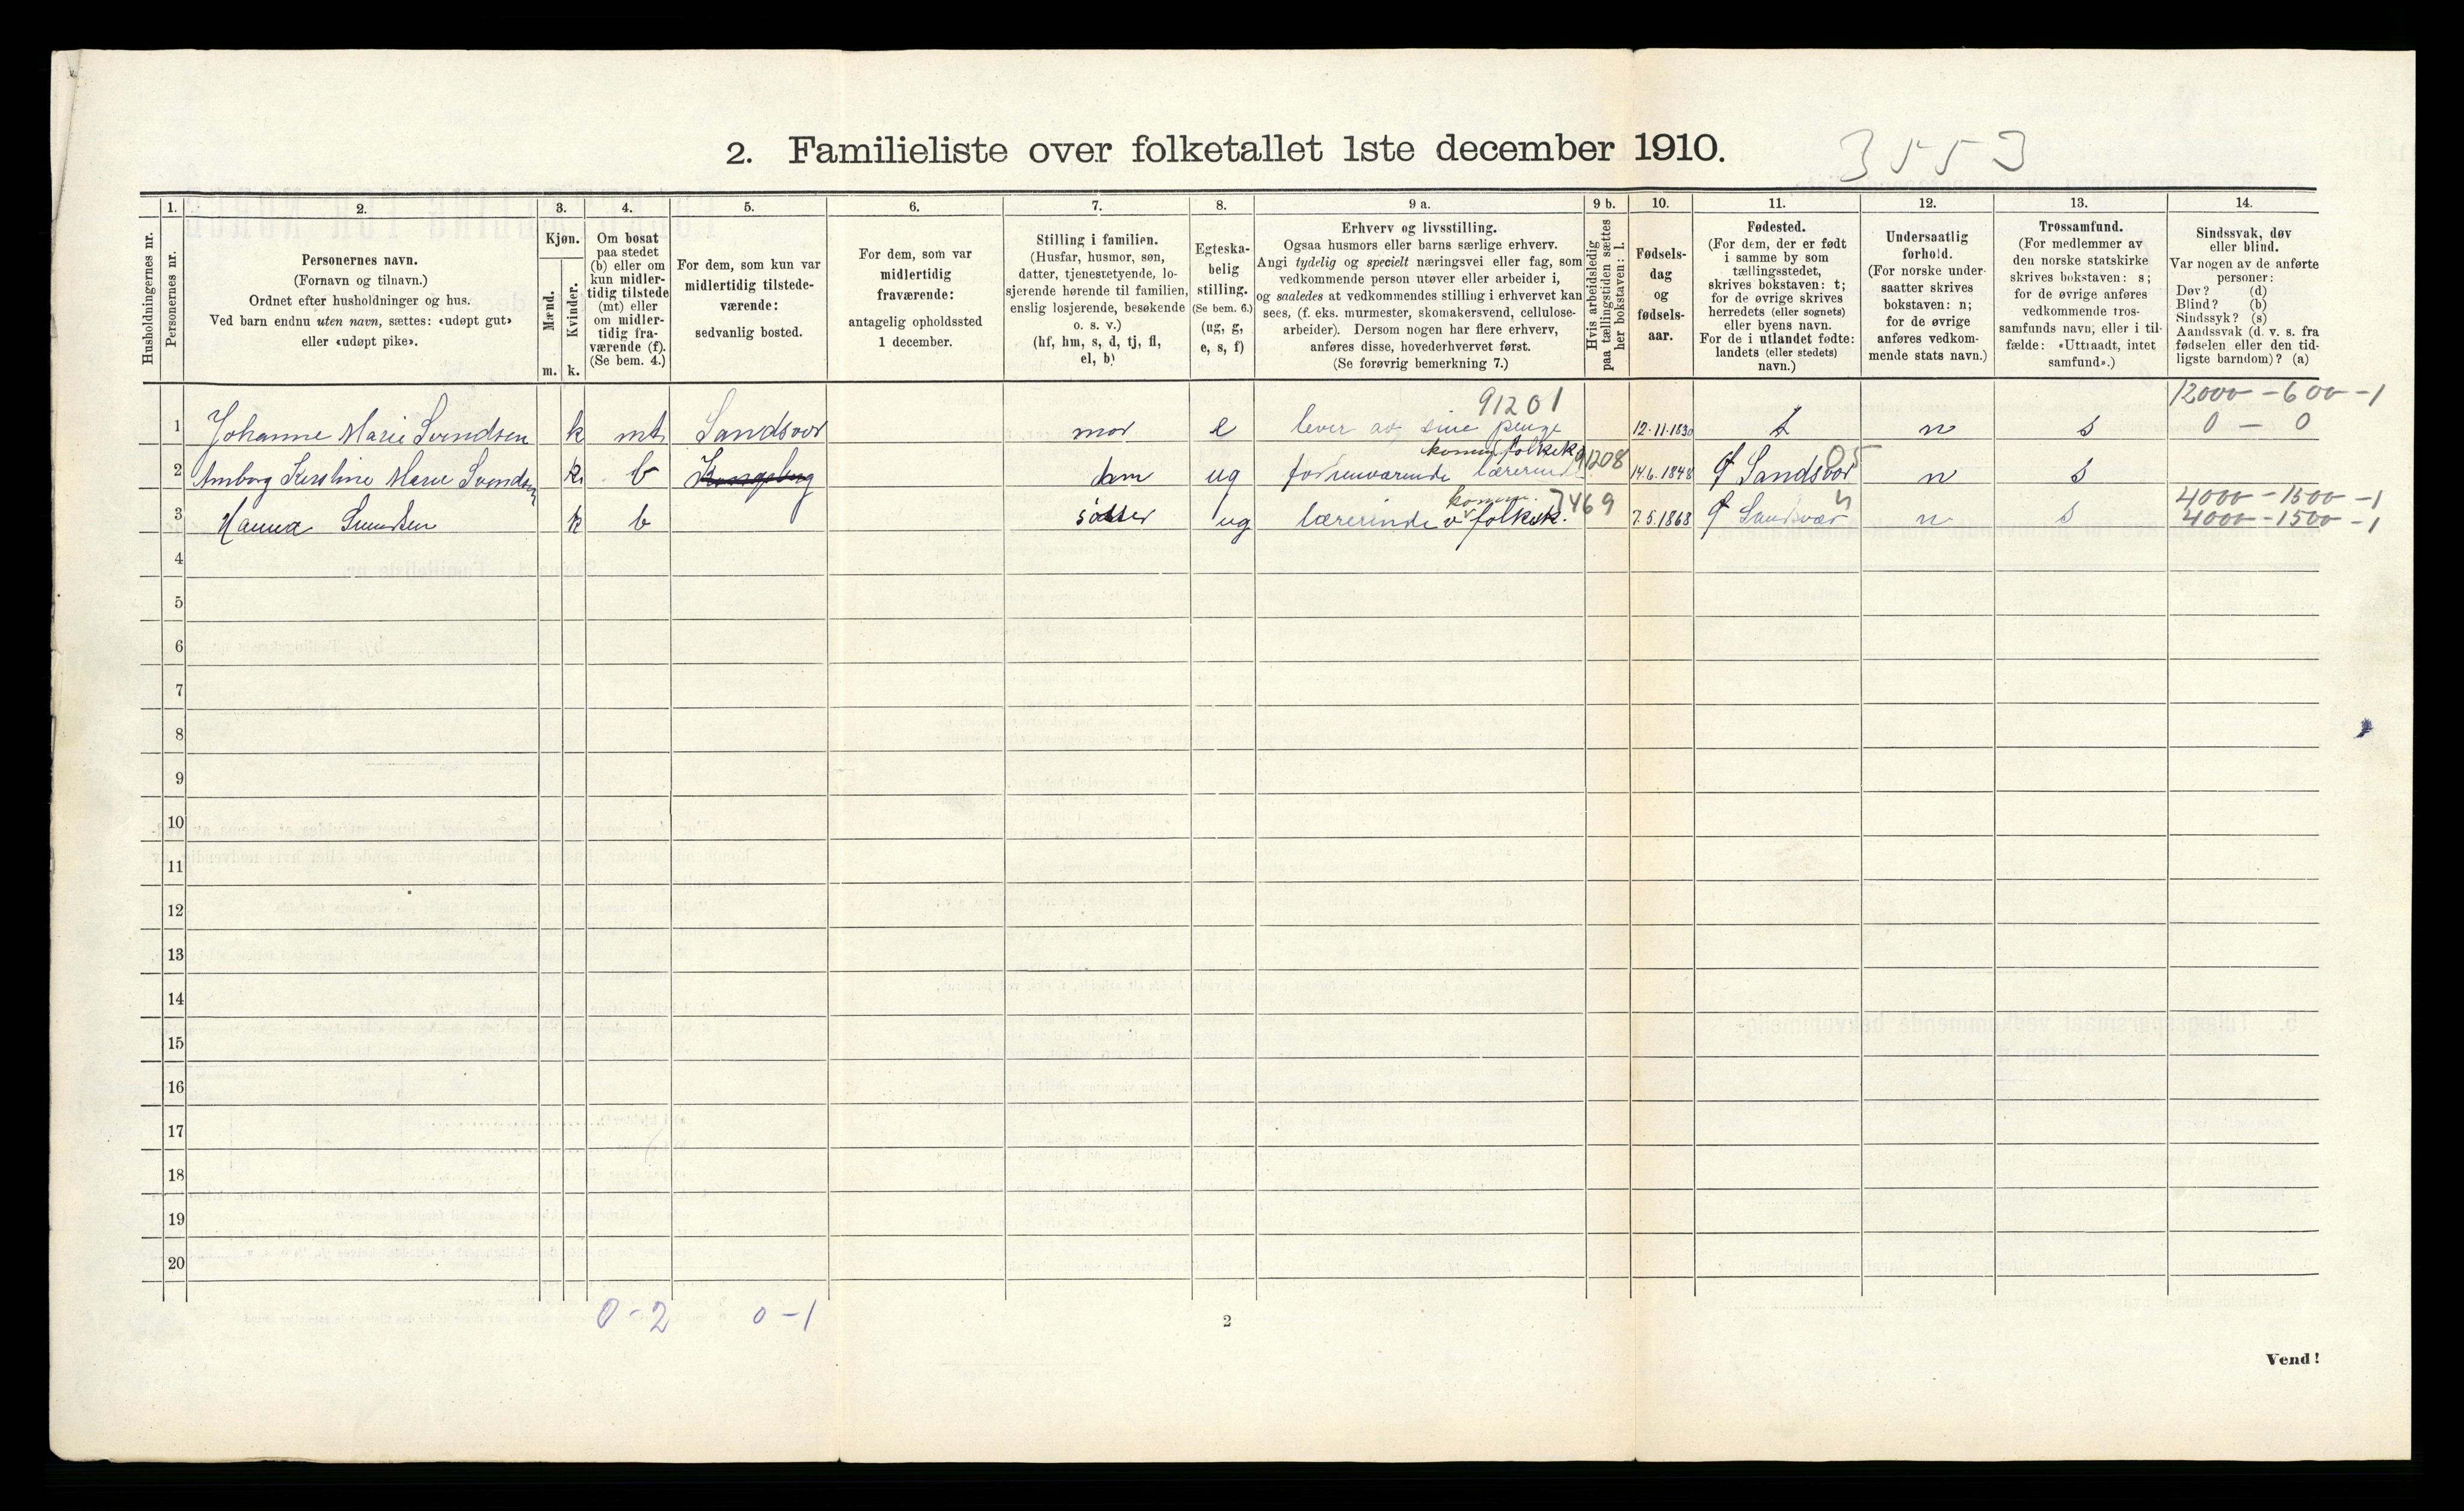 2. Familieliste over folketallet 1ste december 1910.
3553
Husholdningernes nr.
1.
Personernes nr.
2.
Personernes navn.
(Fornavn og tilnavn.)
Ordnet efter husholdninger og hus.
Ved barn endnu uten navn, sættes: «udøpt gut»
eller «udøpt pike».
3.
Kjøn.
Mænd.
Kvinder.
m. k.
4.
Om bosat
paa stedet
(b) eller om
kun midler-
tidig tilstede
(mt) eller
om midler-
tidig fra-
værende (f).
(Se bem. 4.)
5.
For dem, som kun var
midlertidig tilstede-
værende:
sedvanlig bosted.
6.
For dem, som var
midlertidig
fraværende:
antagelig opholdssted
1 december.
7.
Stilling i familien.
(Husfar, husmor, søn,
datter, tjenestetyende, lo-
sjerende hørende til familien,
enslig losjerende, besøkende
o. s. v.)
(hf, hm, s, d, tj, fl,
el, b)
8.
Egteska-
belig
stilling.
(Se bem. 6.)
(ug, g,
e, s, f)
9 a.
Erhverv og livsstilling.
Ogsaa husmors eller barns særlige erhverv.
Angi tydelig og specielt næringsvei eller fag, som
vedkommende person utøver eller arbeider i,
og saaledes at vedkommendes stilling i erhvervet kan
sees, (f. eks. murmester, skomakersvend, cellulose-
arbeider). Dersom nogen har flere erhverv,
anføres disse, hovederhvervet først.
(Se forøvrig bemerkning 7.)
9 b.
Hvis arbeidsledig
paa tællingstiden sættes
her bokstaven: l.
10.
Fødsels-
dag
og
fødsels-
aar.
11.
Fødested.
(For dem, der er født
i samme by som
tællingsstedet,
skrives bokstaven: t;
for de øvrige skrives
herredets (eller sognets)
eller byens navn.
For de i utlandet fødte:
landets (eller stedets)
navn.)
12.
Undersaatlig
forhold.
(For norske under-
saatter skrives
bokstaven: n;
for de øvrige
anføres vedkom-
mende stats navn.)
13.
Trossamfund.
(For medlemmer av
den norske statskirke
skrives bokstaven: s;
for de øvrige anføres
vedkommende tros-
samfunds navn, eller i til-
fælde: «Uttraadt, intet
samfund».)
14.
Sindssvak, døv
eller blind.
Var nogen av de anførte
personer:
Døv? (d)
Blind? (b)
Sindssyk? (s)
Aandssvak (d. v. s. fra
fødselen eller den tid-
ligste barndom)? (a)
91201 12000 - 600 - 1
1 Johanne Marie Svendsen k mt Sandsvær mor e lever av sine penge 12.11.1830 t n s 0 - 0
komm. folkesk. 91208 05
2 Kirstine Marie Svendsen k b Kongsberg hm ug forhenværende lærerinde 14.6.1848 Sandsvær n s
komm. 7469 4000 - 1500 - 1
3 Hanna Svendsen k b søster ug lærerinde v folkesk. 7.5.1868 Sandsvær n s 4000 - 1500 - 1
4
5
6
7
8
9
10
11
12
13
14
15
16
17
18
19
20
0 - 2 0 - 1
2
Vend!